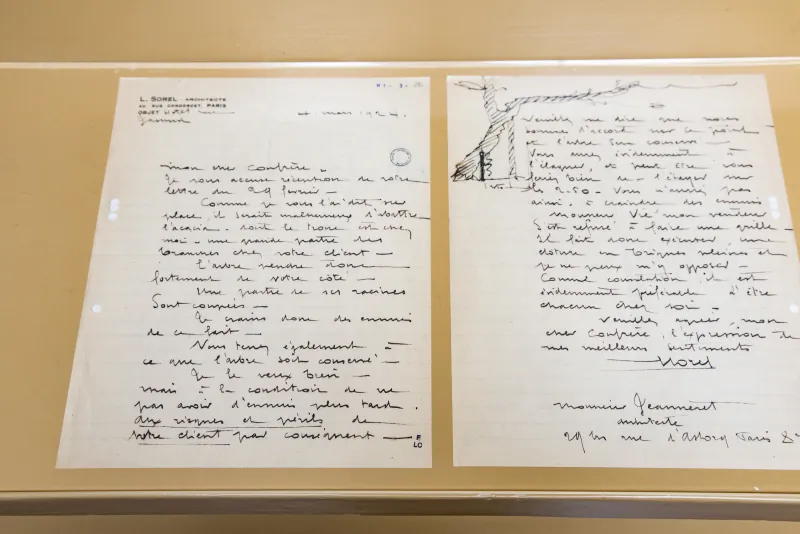 L. SOREL ARCHITECTE
RUE CONDORCET, PARIS
OBJET
4 mars 1924
mon cher Confrère
Je vous accuse réception de votre
lettre du 29 février
Comme je vous l'ai dit sur
place, il serait malheureux d'abattre
l'acacia dont le tronc est chez
moi une grande partie des
branches chez votre client
L'arbre penche donc
fortement de votre côté
Une partie de ses racines
sont coupées
Je crains donc des ennuis
de ce fait
Vous tenez également à
ce que l'arbre soit conservé
Je le veux bien
mais à la condition de ne
pas avoir d'ennuis plus tard.
aux risques et périls de
votre client par conséquent
FLC
Veuillez me dire que nous
sommes d'accord sur ce point
et l'arbre sera conservé
Vous aurez évidemment à
l'élaguer, et peut être vous
feriez bien de l'étayer sur
les 2.50 - Vous n'aurez pas
ainsi à craindre des ennuis
monsieur mon vendeur
s'est refusé à faire une grille
Il fait donc exécuter une
clôture en briques pleines et
je ne peux m'y opposer
Comme consolation, il est
évidemment préférable d'être
chacun chez soi
Veuillez agréer, mon
cher Confrère, l'expression de
mes meilleurs sentiments
Sorel
Monsieur Jeanneret
architecte
29 bis rue d'Astorg Paris 8